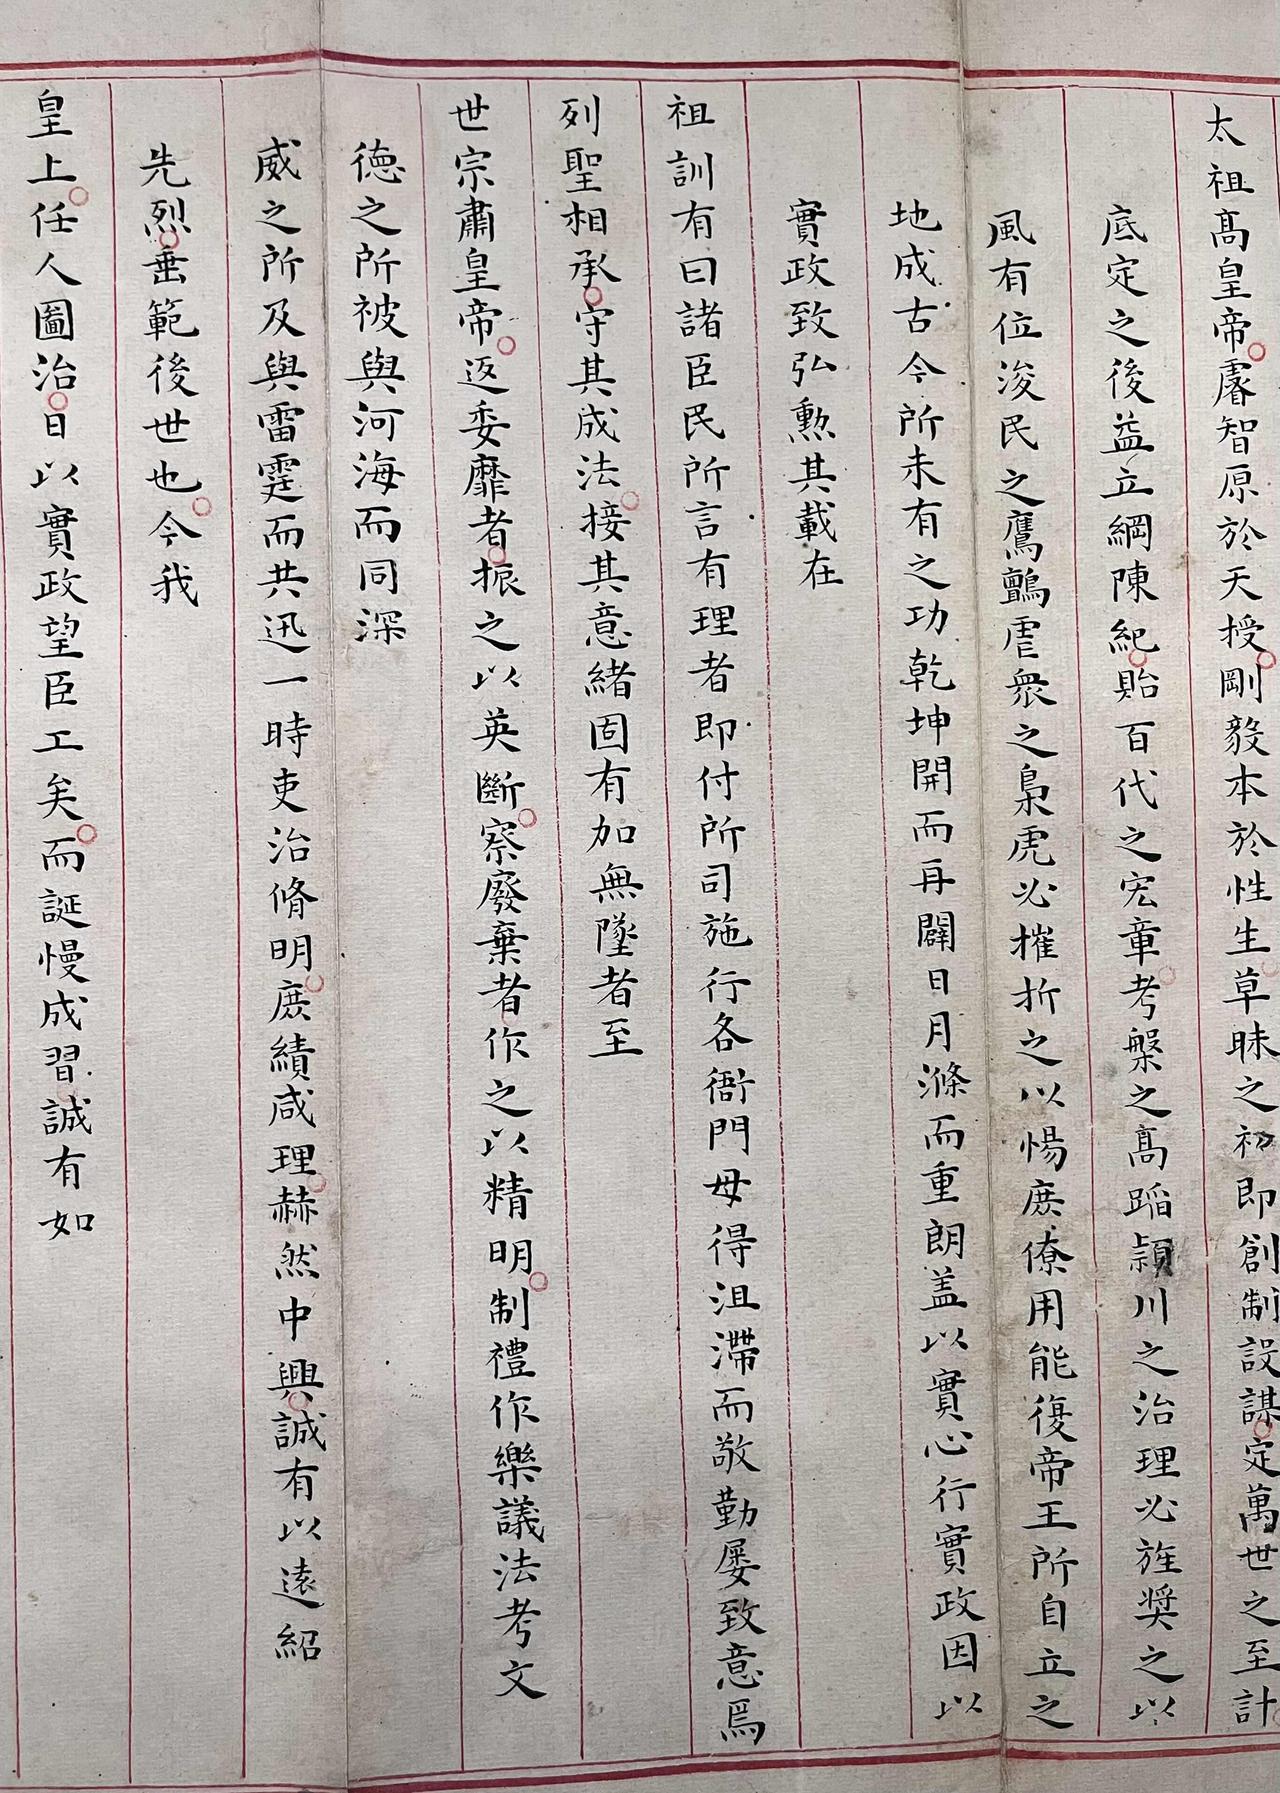 太祖髙皇帝睿智原於天授剛毅本於性生草昧之初即創制設謀定萬世之至計
底定之後益立綱陳紀貽百代之宏章考槃之髙蹈頴川之治理必旌奬之以
風有位浚民之鷹鸇虐衆之梟虎必摧折之以惕庶僚用能復帝王所自立之
地成古今所未有之功乾坤開而再闢日月滌而重朗盖以實心行實政因以
實政致弘勲其載在
祖訓有曰諸臣民所言有理者即付所司施行各衙門毋得沮滯而敬勤屡致意焉
列聖相承守其成法接其意緒固有加無墜者至
世宗肅皇帝返委靡者振之以英斷察廢棄者作之以精明制禮作樂議法考文
德之所被與河海而同深
威之所及與雷霆而共迅一時吏治脩明庶績咸理赫然中興誠有以逺紹
先烈垂範後世也今我
皇上任人圖治日以實政望臣工矣而誕慢成習誠有如